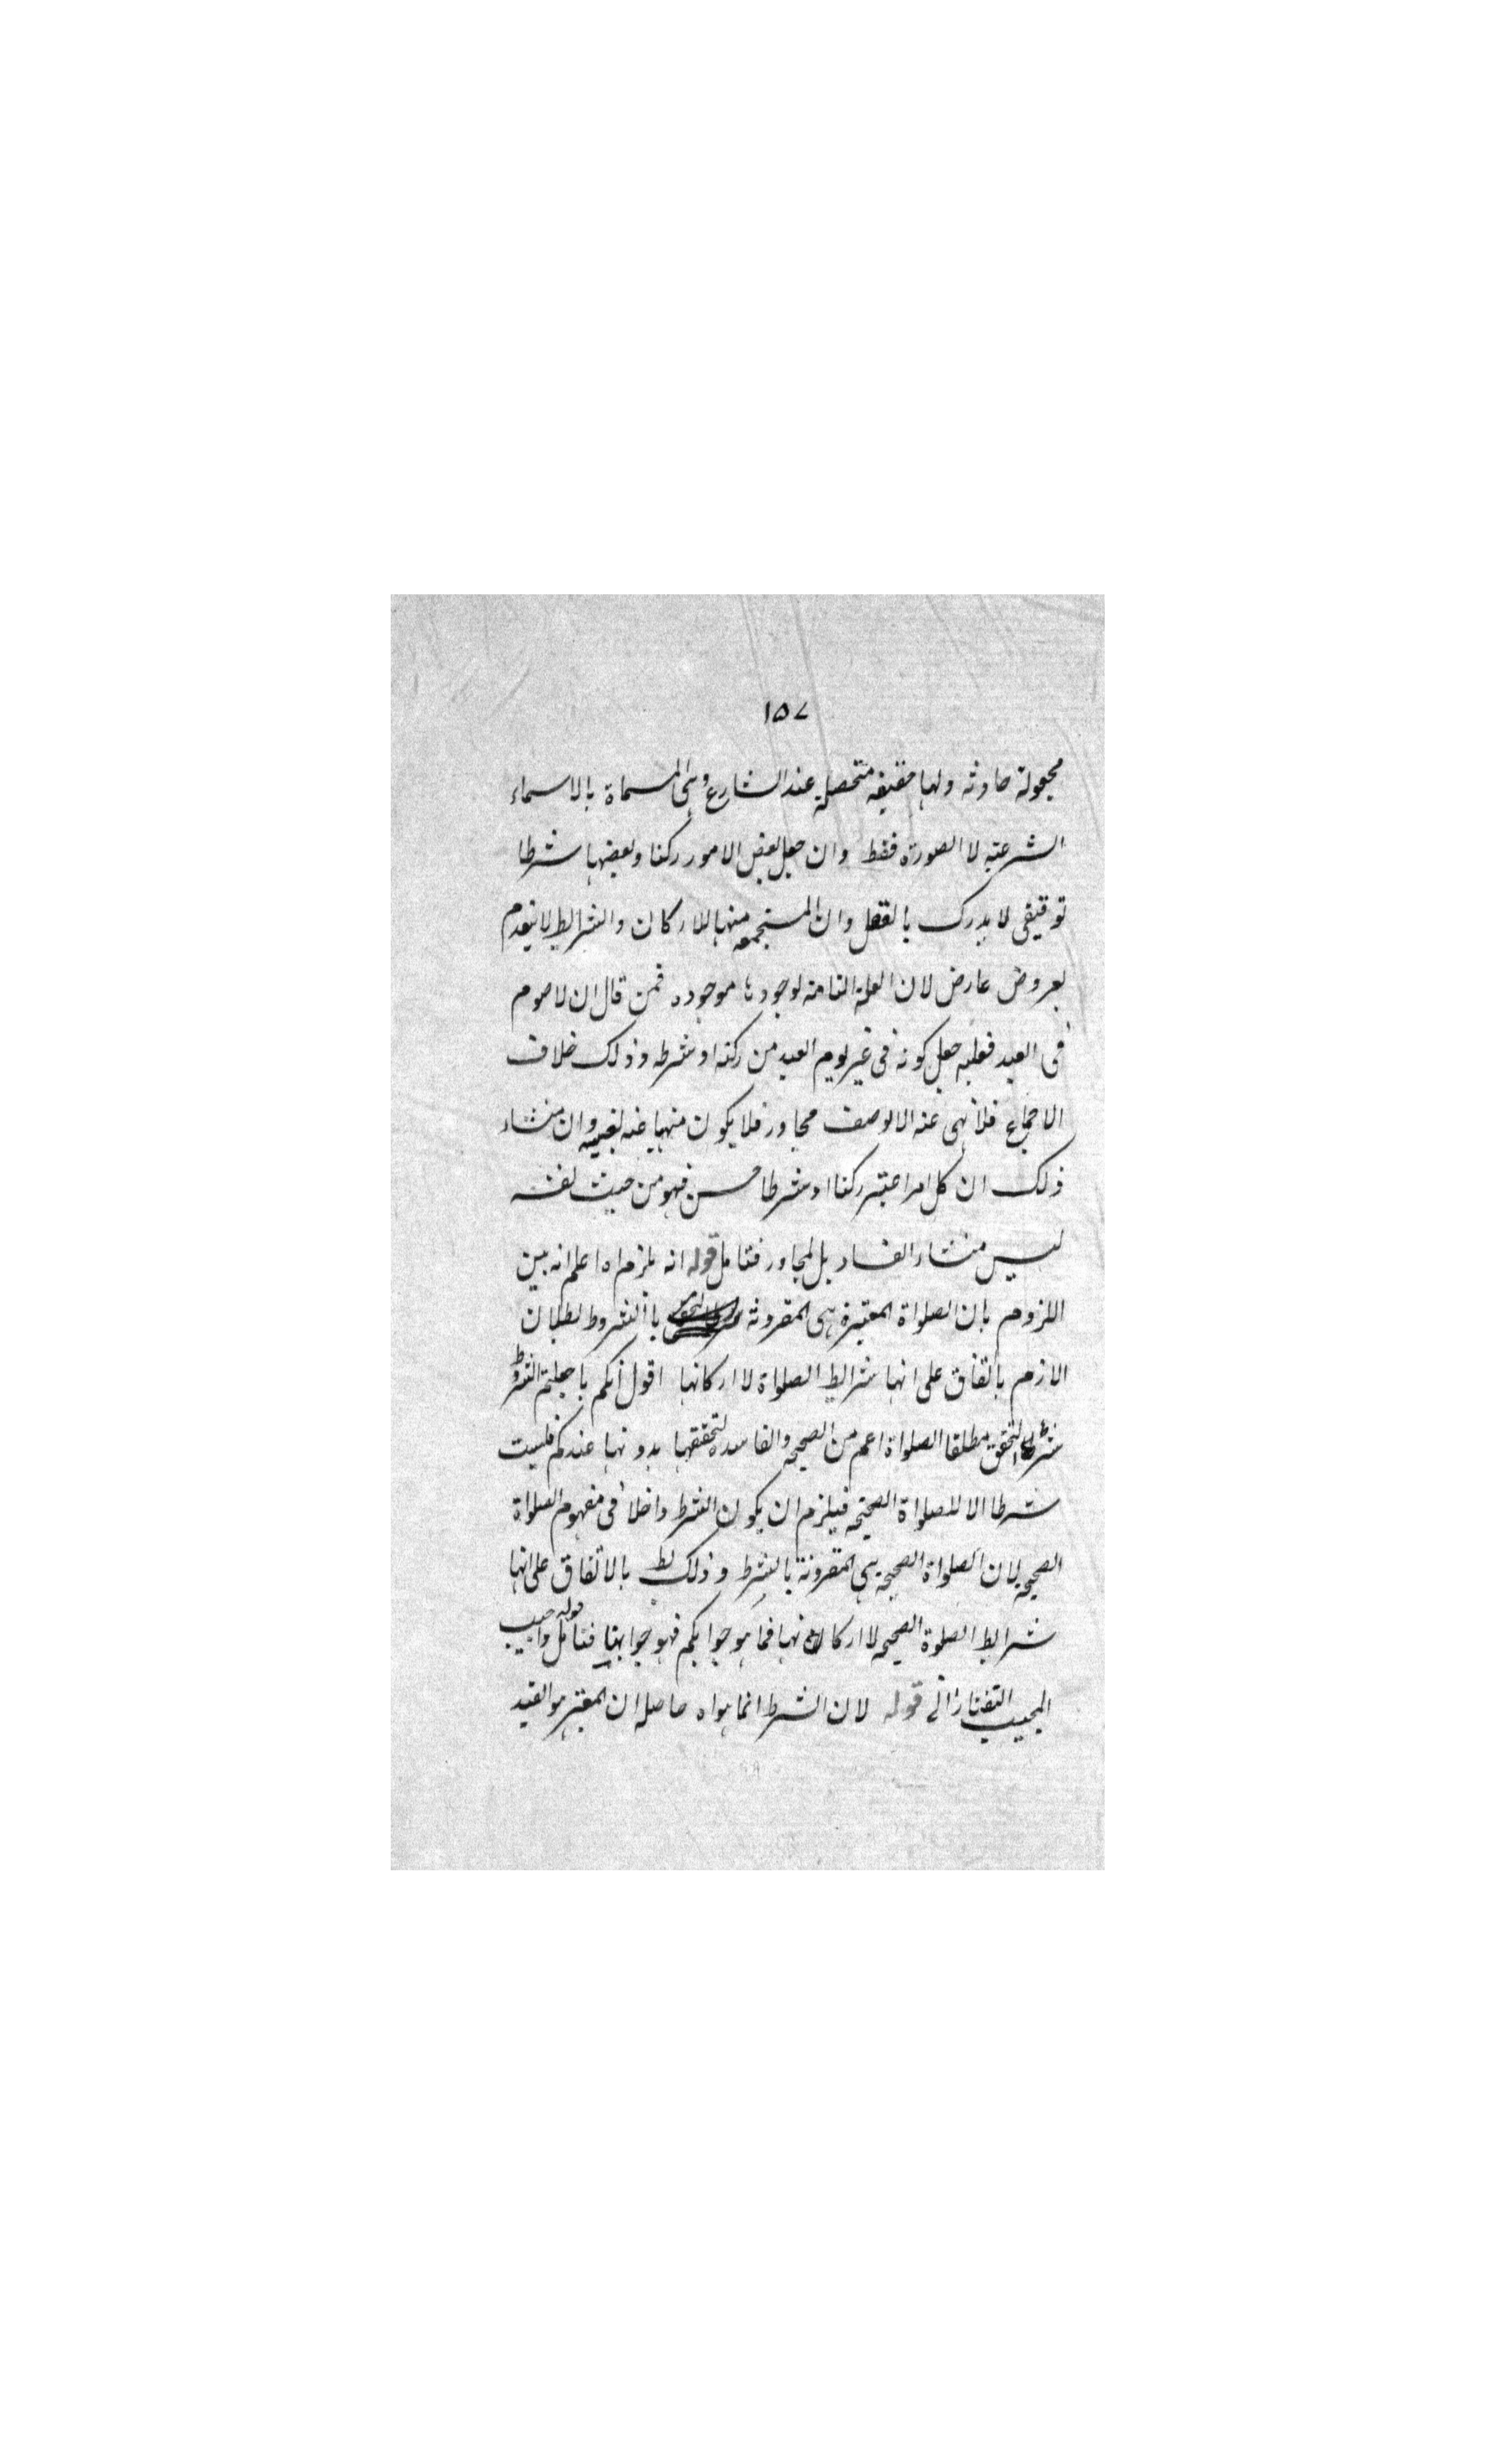 ١٥٧
مجعولة حادثه ولها حقيقه متحصلة عند الشارع وهى المسماة بالاسماء
الشرعيه لا الصورة فقط وان جعل بعض الامور ركنا وبعضها شرطا
توقيفى لا يدرك بالعقل وان المستجمعه منها للاركان والشرايط لا ينعدم
بعروض عارض لان العلة التامه لوجودها موجوده فمن قال ان لا صوم
فى العيد فعليه جعل كونه فى غير يوم العيد من ركنه او شرطه وذلك خلاف
الاجماع فلا نهى عنه الا لوصف مجاور فلا يكون منهيا عنه لعينه وان منشاء
ذلك ان كل امر اعتبر ركنا او شرطا حسن فهو من حيث نفسه
ليس منشاء الفساد بل لمجاور فتامل قوله انه يلزم اه اعلم انه بين
اللزوم بان الصلواة المعتبرة هى المقرونه بالشروط بطلان
الازم بالتفاق على انها شرايط الصلواة لا اركانها اقول انكم ما جعلتم الشروط
شرطا لتحقق مطلقا الصلواة اعم من الصحيح والفاسده لتحققها بدونها عندكم فليست
شرطا الا للصلواة الصحيحه فيلزم ان يكون الشرط داخلا فى مفهوم الصلواة
الصحيحه لان الصلواة الصحيحه هى المقرونة بالشرط وذلك بط بالاتفاق على انها
شرايط الصلوة الصحيحه لا اركانها فما هو جوابكم فهو جوابنا فتامل قوله واجيب
المجيب التفتازانى قوله لان الشرط انما هو اه حاصله ان المعتبر هو التقيد